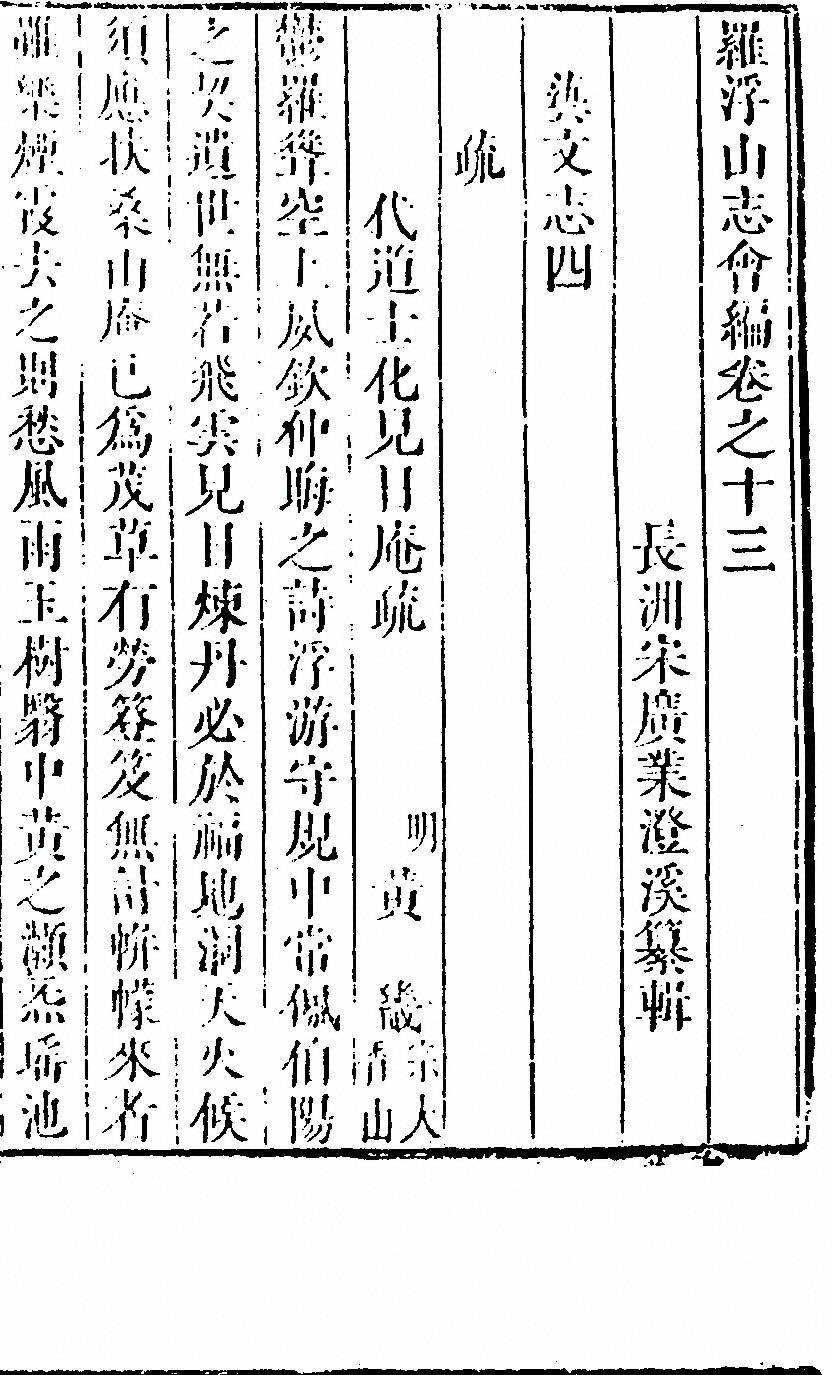 羅浮山志會編卷之十三
長洲宋廣業澄溪纂輯
藝文志四
疏
代道士化見日庵疏
明黃畿香山人
鬱羅聳空上夙欽仲晦之詩浮游守規中常佩伯陽
之契遺世無若飛雲見日煉丹必於福地洞天火候
須應扶桑山庵已爲茂草有勞簦笈無計帡幪來者
雖樂煙霞去之則愁風雨玉樹翳中黃之瀨蒸瑤池